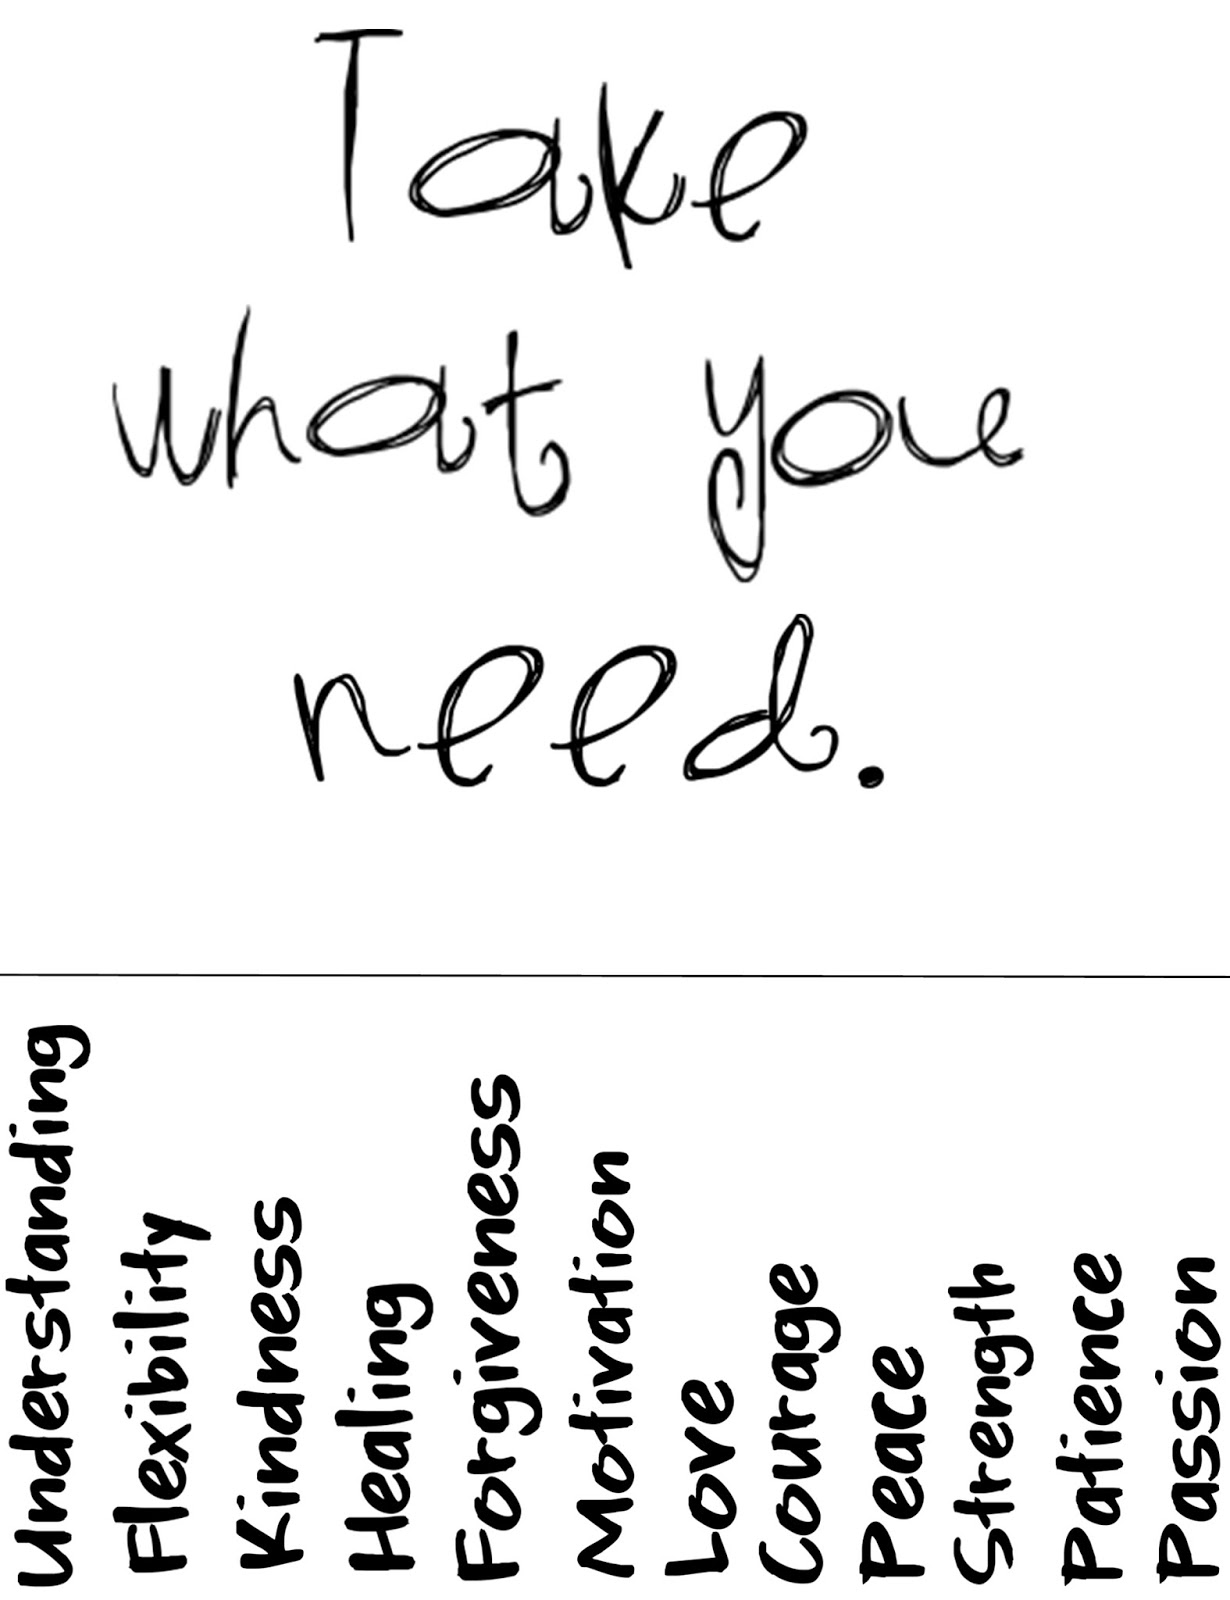 Take
what you
need.
Understanding
Flexibility
Kindness
Healing
Forgiveness
Motivation
Love
Courage
Peace
Strength
Patience
Passion